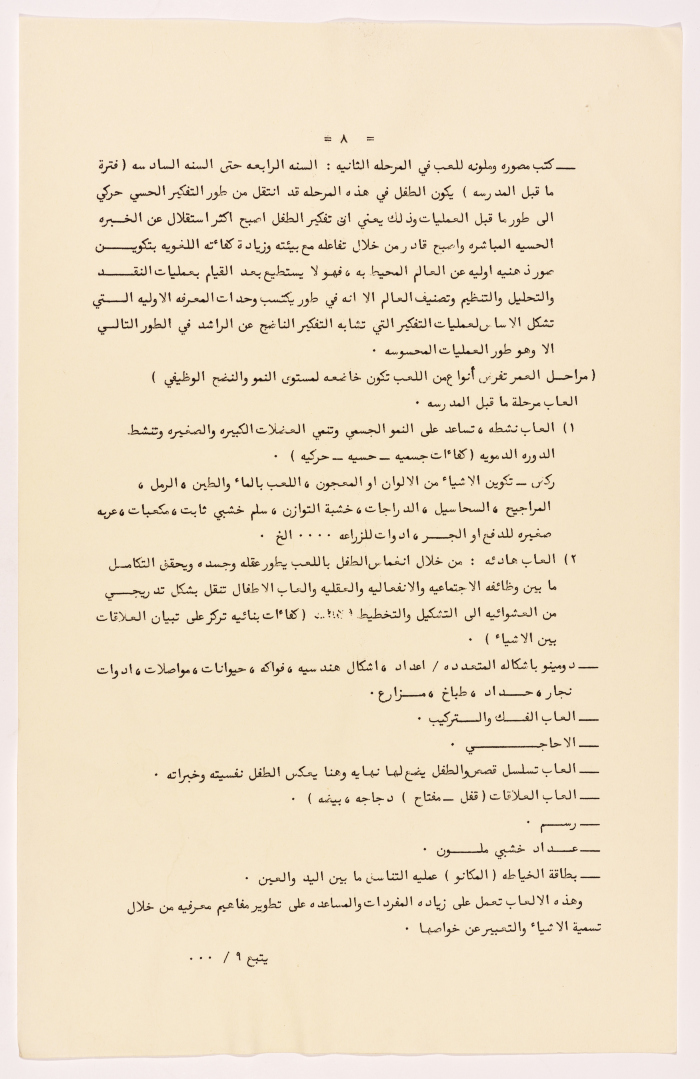 = ٨ =
ـــ كتب مصوره وملونه للعب في المرحله الثانيه : السنه الرابعه حتى السنه السادسه ( فترة
ما قبل المدرسه ) يكون الطفل في هذه المرحله قد انتقل من طور التفكير الحسي حركي
الى طور ما قبل العمليات وذلك يعني ان تفكير الطفل اصبح اكثر استقلال عن الخبره
الحسيه المباشره واصبح قادر من خلال تفاعله مع بيئته وزيادة كفائته اللغويه بتكويـــن
صور ذهنيه اوليه عن العالم المحيط به ، فهو لا يستطيع بعد القيام بعمليات النقـــد
والتحليل والتنظيم وتصنيف العالم الا انه في طور يكتسب وحدات المعرفه الاوليه الـــتي
تشكل الاساس لعمليات التفكير التي تشابه التفكير الناضج عن الراشد في الطور التالـــي
الا وهو طور العمليات المحسوسه .
( مراحـل العمر تفرض أنواع من اللعب تكون خاضعه لمستوى النمو والنضج الوظيفي )
العاب مرحلة ما قبل المدرسه .
١) العاب نشطه ، تساعد على النمو الجسمي وتنمي العضلات الكبيره والصغيره وتنشط
الدوره الدمويه ( كفاءات جسميه ــ حسيه ــ حركيه ) .
ركض ــ تكوين الاشياء من الالوان او المعجون ، اللعب بالماء والطين ، الرمل ،
المراجيح ، السحاسيل ، الدراجات ، خشبة التوازن ، سلم خشبي ثابت ، مكعبات ، عربه
صغيره للدفع او الجـــر ، ادوات للزراعه ٠٠٠٠ الخ .
٢) العاب هادئه : من خلال انغماس الطفل باللعب يطور عقله وجسده ويحقق التكامـل
ما بين وظائفه الاجتماعيه والانفعاليه والعقليه والعاب الاطفال تنقل بشكل تدريجـــي
من العشوائيه الى التشكيل والتخطيط ( كفاءات بنائيه تركز على تبيان العلاقات
بين الاشياء ) .
ـــ دومينو باشكاله المتعدده / اعداد ، اشكال هندسيه ، فواكه ، حيوانات ، مواصلات ، ادوات
نجار ، حـــداد ، طباخ ، مـــزارع .
ـــ العاب الفـــك والـــتركيب .
ـــ الاحاجـــــــي .
ـــ العاب تسلسل قصص والطفل يضع لها نهايه وهنا يعكس الطفل نفسيته وخبراته .
ـــ العاب العلاقات ( قفل ــ مفتاح ) دجاجه ، بيضه ) .
ـــ رســـم .
ـــ عـــداد خشبي ملـــون .
ـــ بطاقة الخياطه ( المكانو ) عمليه التناسق ما بين اليد والعين .
وهذه الالعاب تعمل على زياده المفردات والمساعده على تطوير مفاهيم معرفيه من خلال
تسمية الاشياء والتعبير عن خواصها .
يتبع ٩ / ٠٠٠